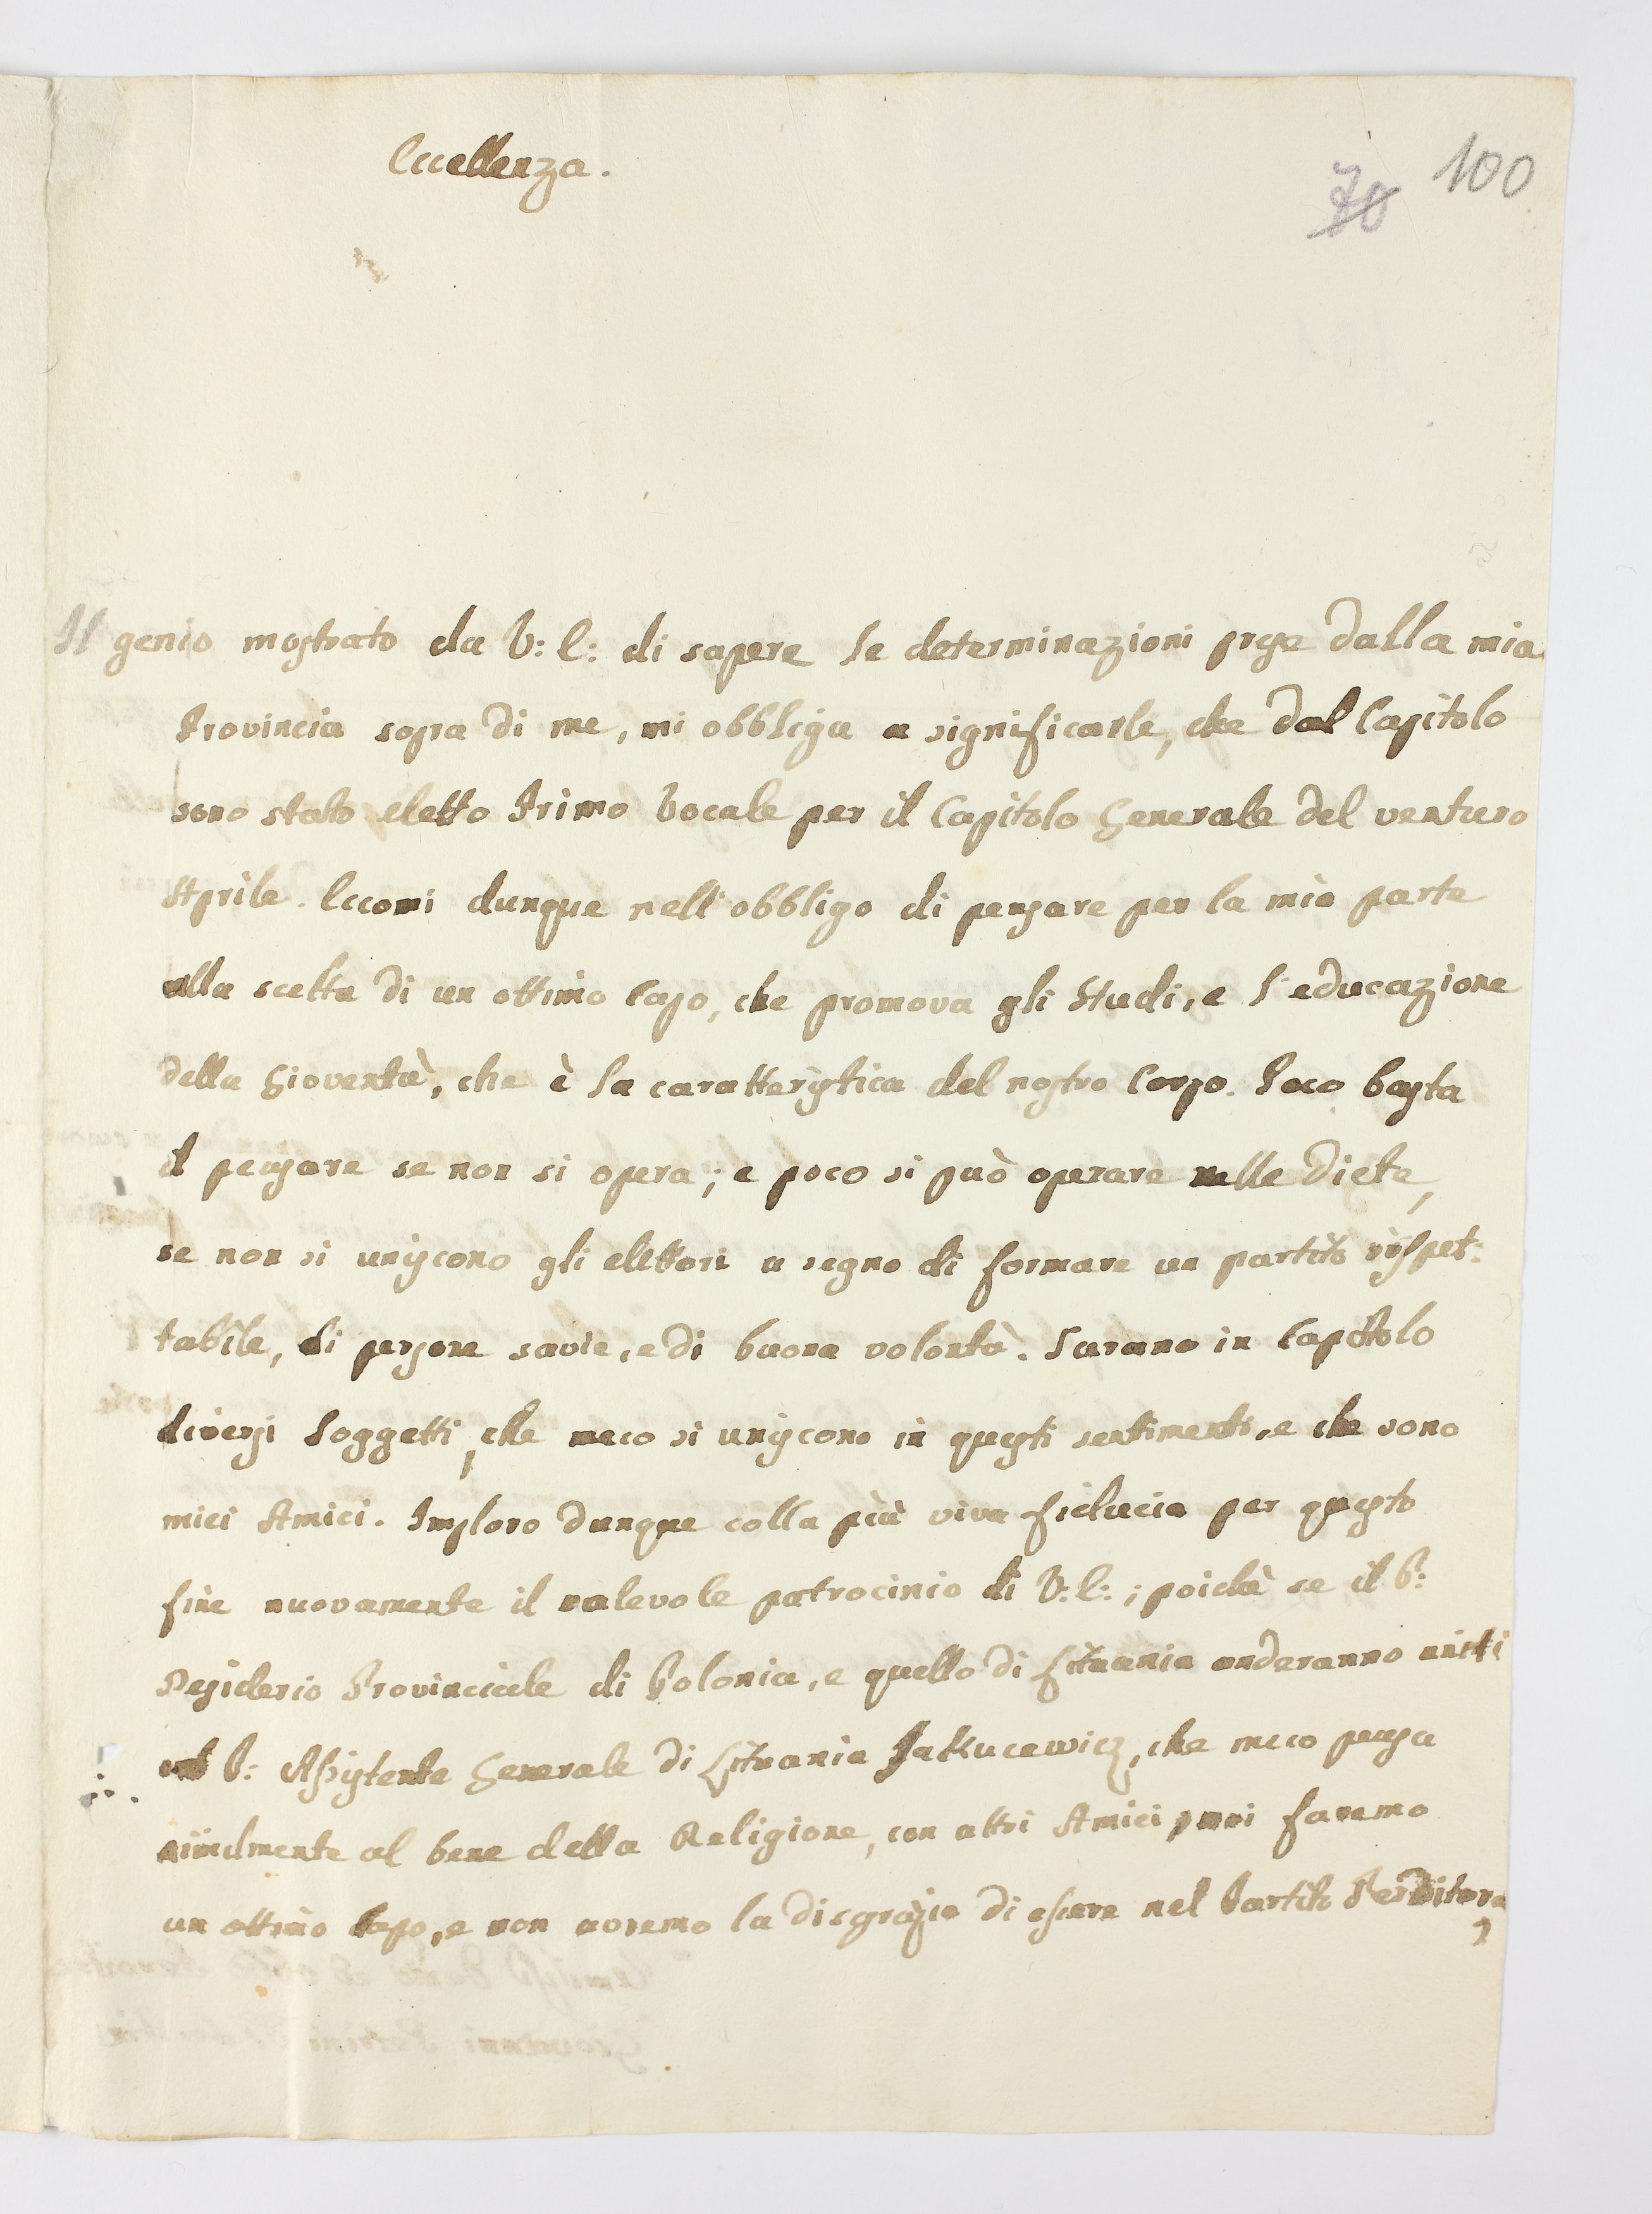 Eccellenza.
70 100
Il genio mostrato da V: E: di sapere le determinazioni prese dalla mia
Provincia sopra di me, mi obbliga a significarle, che dal Capitolo
sono stato eletto Primo Vocale per il Capitolo Generale del venturo
Aprile. Eccomi dunque nell'obbligo di pensare per la mia parte
alla scelta di un ottimo Capo, che promova gli Studi, e l'educazione
della Gioventù, che è la caratteristica del nostro Corpo. Poco basta
il pensare se non si opera; e poco si può operare nelle Diete,
se non si uniscono gli elettori a segno di formare un partito rispet:
tabile, di persone savie, e di buona volontà. Sarano in Capitolo
diversi Soggetti, che meco si uniscono in questi sentimenti, e che sono
miei Amici. Imploro dunque colla più viva fiducia per questo
fine nuovamente il valevole patrocinio di V: E:; poichè se il P:
Desiderio Provinciale di Polonia, e quello di Lituania anderanno uniti
col P: Assistente Generale di Lituania Jakucewicz, che meco pensa
unicamente al bene della Religione, con altri Amici suoi faremo
un ottimo Capo, e non avremo la disgrazia di essere nel Partito Perditore